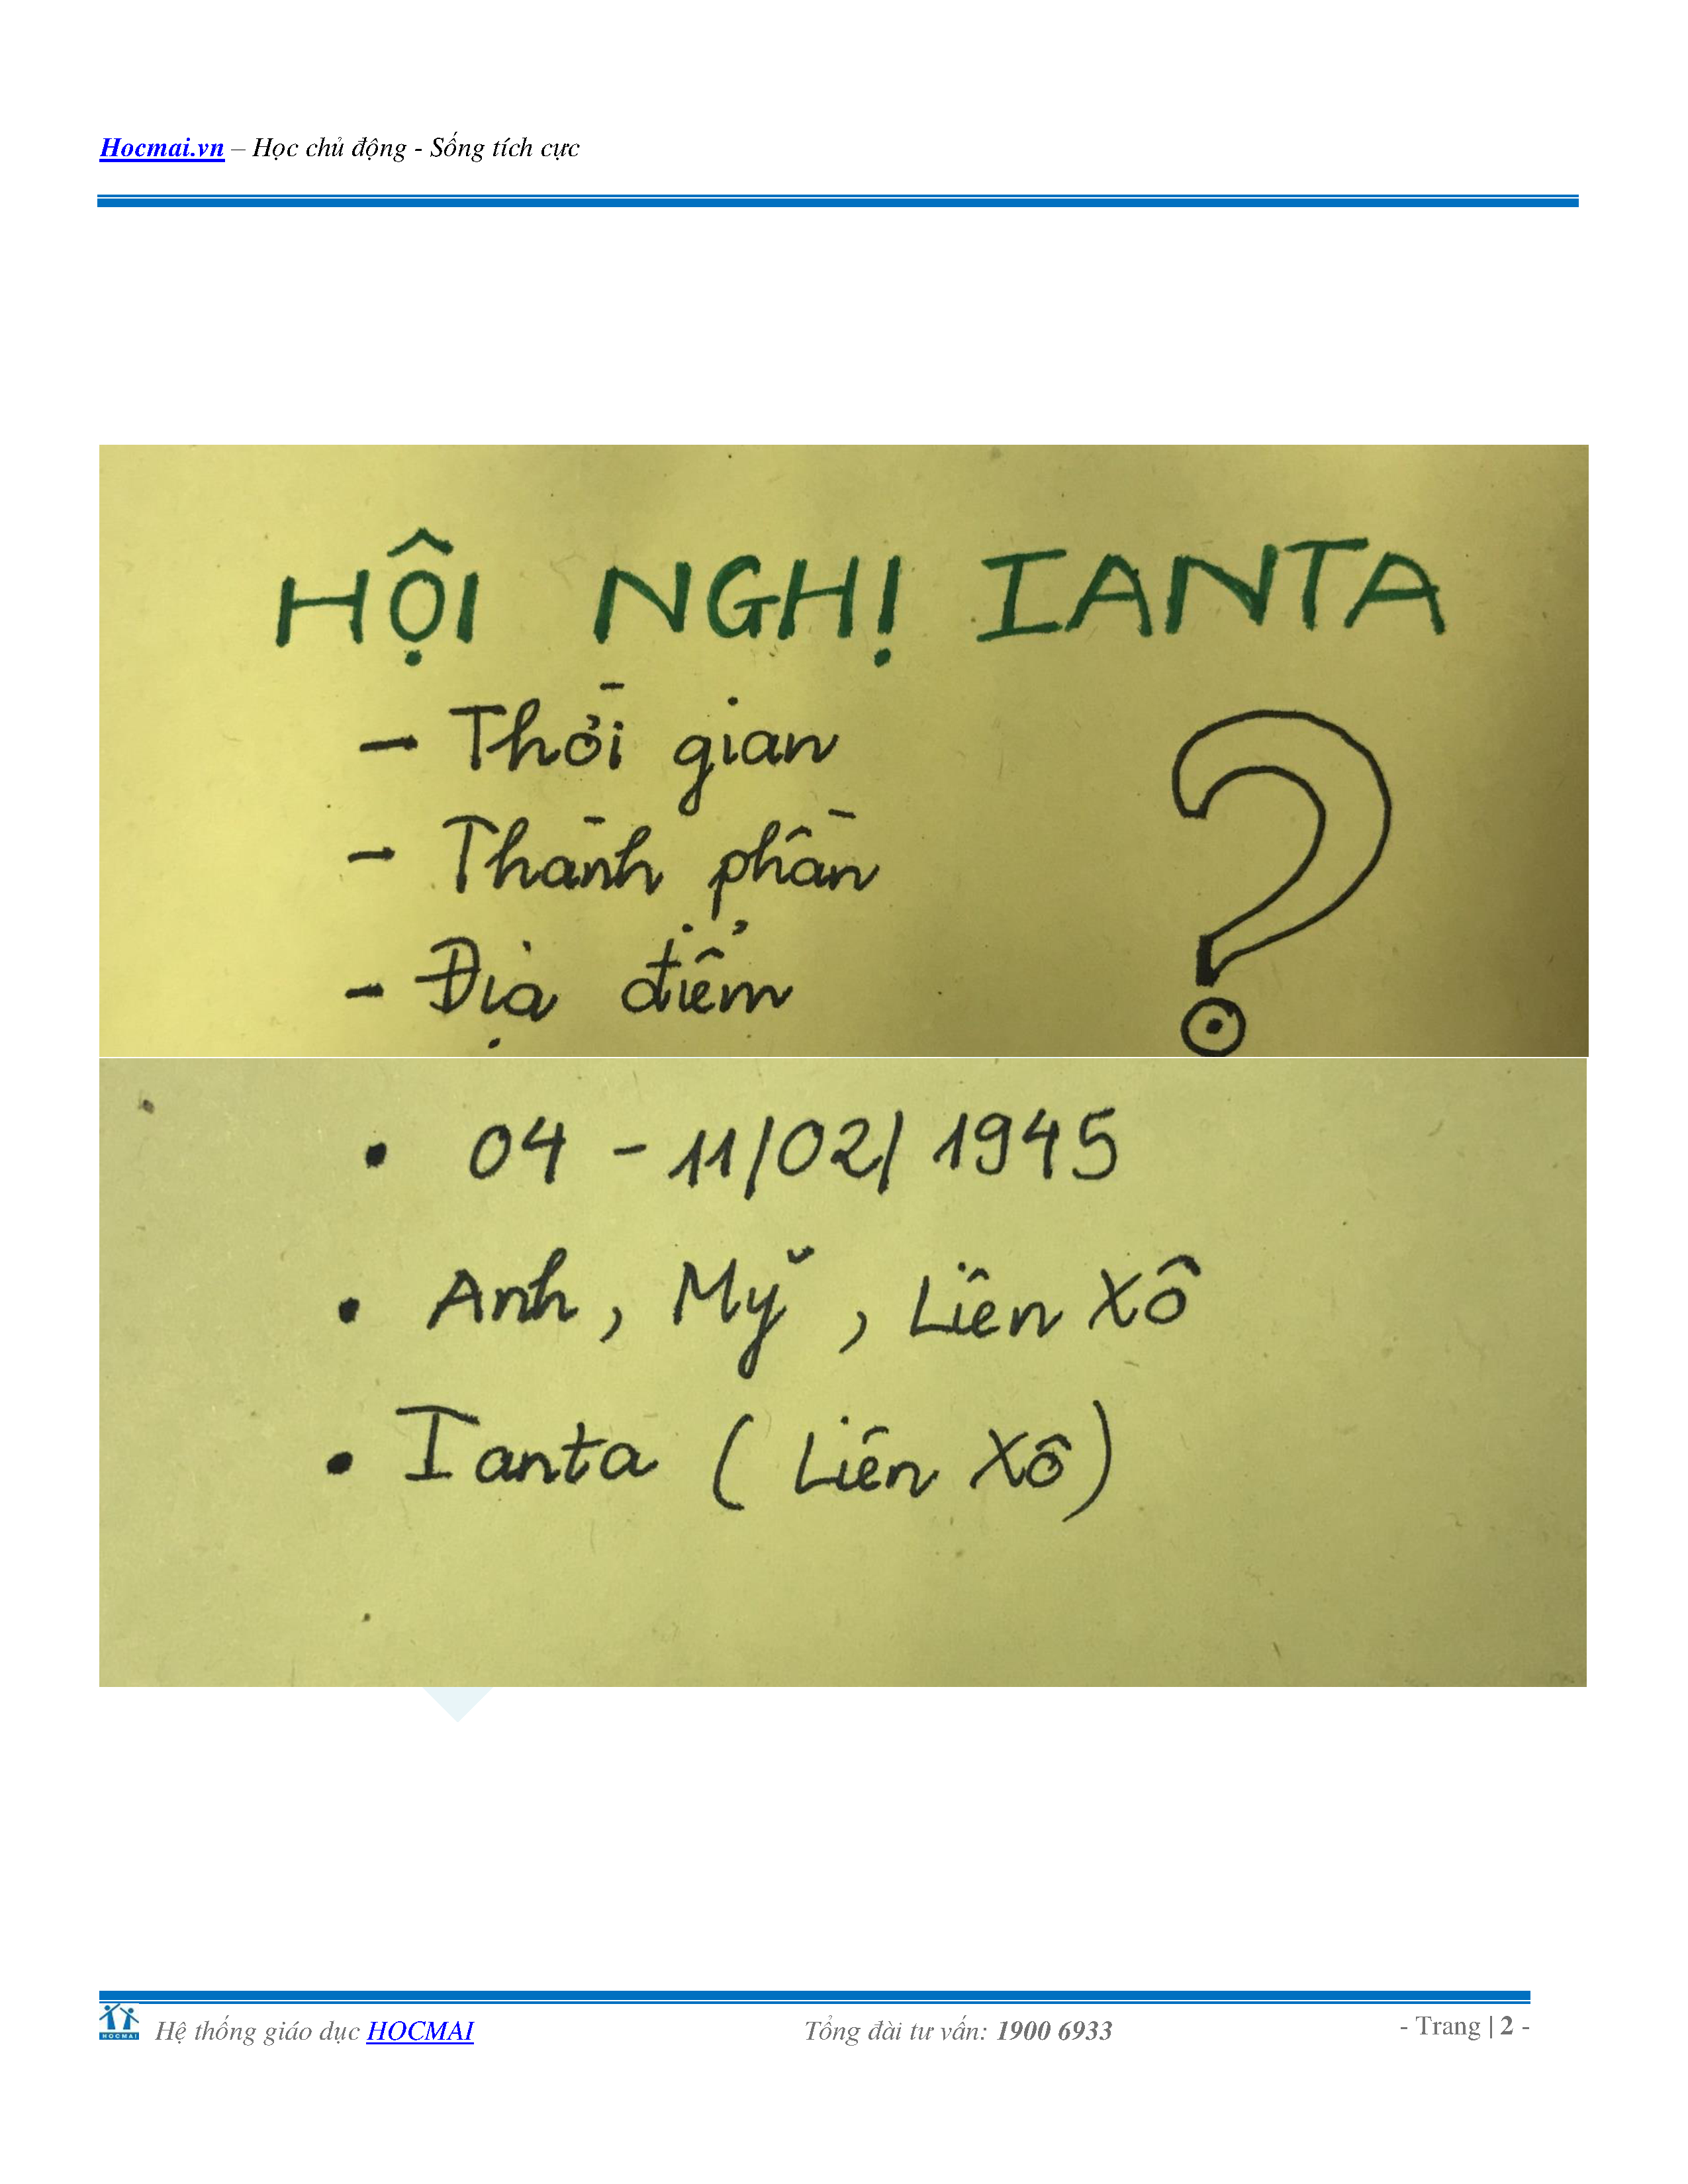 Hocmai.vn – Học chủ động - Sống tích cực
HỘI NGHỊ IANTA
- Thời gian
- Thành phần
- Địa điểm
?
• 04 - 11/02/1945
• Anh, Mỹ, Liên Xô
• Ianta (Liên Xô)
HOCMAI
Hệ thống giáo dục HOCMAI Tổng đài tư vấn: 1900 6933 - Trang | 2 -